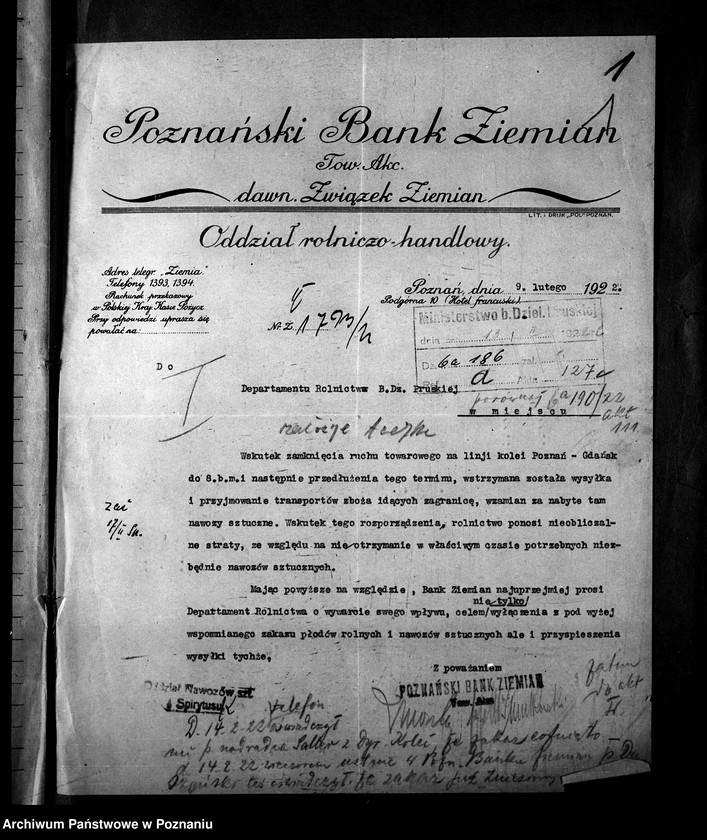 1
Poznański Bank Ziemian
Tow. Akc.
dawn. Związek Ziemian
LIT. I DRUK „POL” POZNAŃ.
Oddział rolniczo-handlowy.
Adres telegr. „Ziemia”
Telefony 1393, 1394.
Rachunek przekazowy
w Polskiej Kraj. Kasie Pożycz.
Przy odpowiedzi uprasza się
powołać na:
Nr. Z. 1793/
Poznań, dnia 9. lutego 1922.
Podgórna 10 (Hotel francuski)
Ministerstwo b. Dziel. Pruskiej
dnia 13
Dz. 6a 186 zał.
a Akta 127a
Do
Departamentu Rolnictwa B.Dz. Pruskiej
190/22
w miejscu
akt
Wskutek zamknięcia ruchu towarowego na linji kolei Poznań - Gdańsk
do 8.b.m.i następnie przedłużenia tego terminu, wstrzymana została wysyłka
i przyjmowanie transportów zboża idących zagranicę, wzamian za nabyte tam
nawozy sztuczne. Wskutek tego rozporządzenia, rolnictwo ponosi nieobliczal-
ne straty, ze względu na nie otrzymanie w właściwym czasie potrzebnych niez-
będnie nawozów sztucznych.
17/II
Mając powyższe na względzie , Bank Ziemian najuprzejmiej prosi
nie tylko/
Departament Rolnictwa o wywarcie swego wpływu, celem/wyłączenia z pod wyżej
wspomnianego zakazu płodów rolnych i nawozów sztucznych ale i przyspieszenia
wysyłki tychże.
Z poważaniem
POZNAŃSKI BANK ZIEMIAN
Tow. Akc.
Oddział Nawozów szt.
i Spirytusu
telefon
do akt
D. 14.2.22
p. nadradca z Dyr. Kolei, że zakaz cofnięto -
d 14.2.22 wieczorem ustnie Banku Ziemian p.
też że zakaz już zniesiony
Archiwum Państwowe w Poznaniu